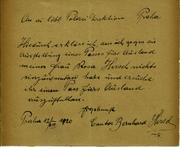 An die löbl. Polizei Direktion Praha
Hiermit erkläre ich, daß ich gegen die
Ausstellung eines Passes fürs Ausland
meiner Frau Rosa Hirsch nichts
einzuwenden habe und ersuche
ihr einen Pass fürs Ausland
auszufolgen.
Praha 1920
Cantor Bernhard Hirsch